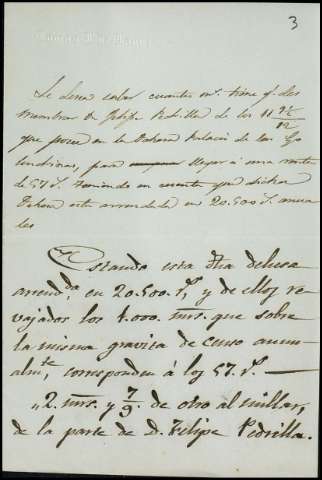 3
Se desea saber cuantos m.s tiene q.e des
membrar D. Felipe Pedrilla de los 11
que posee en la Dehesa de las Go
londrinas, para llegar á una renta
de 57 r.s Teniendo en cuenta que dicha
Dehesa está arrendada en 20.500 r.s anua
les
Estando esta dha dehesa
arrend.da en 20.500 r.s, y de ellos re
vajados los 1.000 mrs. que sobre
la misma gravita de censo anua-
alm.te, corresponden á los 57. r.s
"2. mrs. y 7/9. de otro al millar,
de la parte de D. Felipe Pedrilla.